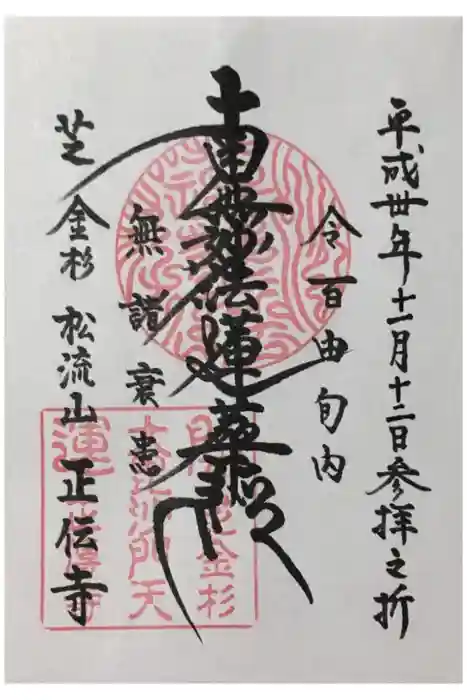 平成卅年十一月十二日参拝之折
令百由旬内
南無妙法蓮華経
無諸衰患
芝金杉松流山正伝寺